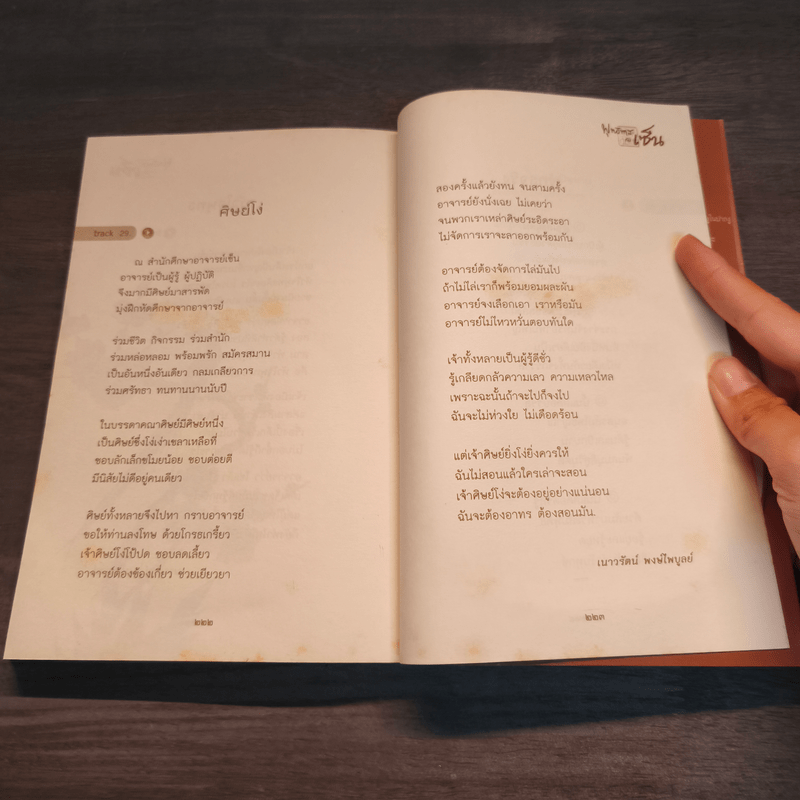 ศิษย์โง่
track 29
ณ สำนักศึกษาอาจารย์เซ็น
อาจารย์เป็นผู้รู้ ผู้ปฏิบัติ
จึงมากมีศิษย์มาสารพัด
มุ่งฝึกหัดศึกษาจากอาจารย์
ร่วมชีวิต กิจกรรม ร่วมสำนัก
ร่วมหล่อหลอม พร้อมพรัก สมัครสมาน
เป็นอันหนึ่งอันเดียว กลมเกลียวการ
ร่วมศรัทธา ทนทานนานนับปี
ในบรรดาคณาศิษย์มีศิษย์หนึ่ง
เป็นศิษย์ซึ่งโง่เง่าเขลาเหลือที่
ชอบลักเล็กขโมยน้อย ชอบต่อยตี
มีนิสัยไม่ดีอยู่คนเดียว
ศิษย์ทั้งหลายจึงไปหา กราบอาจารย์
ขอให้ท่านลงโทษ ด้วยโกรธเกรี้ยว
เจ้าศิษย์โง่โป้ปด ชอบลดเลี้ยว
อาจารย์ต้องข้องเกี่ยว ช่วยเยียวยา
๒๒๒
พุทธทาส
กับ
เซ็น
สองครั้งแล้วยังทน จนสามครั้ง
อาจารย์ยังนั่งเฉย ไม่เคยว่า
จนพวกเราเหล่าศิษย์ระอิดระอา
ไม่จัดการเราจะลาออกพร้อมกัน
อาจารย์ต้องจัดการไล่มันไป
ถ้าไม่ไล่เราก็พร้อมยอมผละผัน
อาจารย์จงเลือกเอา เราหรือมัน
อาจารย์ไม่ไหวหวั่นตอบทันใด
เจ้าทั้งหลายเป็นผู้รู้ดีชั่ว
รู้เกลียดกลัวความเลว ความเหลวไหล
เพราะฉะนั้นถ้าจะไปก็จงไป
ฉันจะไม่ห่วงใย ไม่เดือดร้อน
แต่เจ้าศิษย์ยิ่งโง่ยิ่งควรให้
ฉันไม่สอนแล้วใครเล่าจะสอน
เจ้าศิษย์โง่จะต้องอยู่อย่างแน่นอน
ฉันจะต้องอาทร ต้องสอนมัน.
เนาวรัตน์ พงษ์ไพบูลย์
๒๒๓